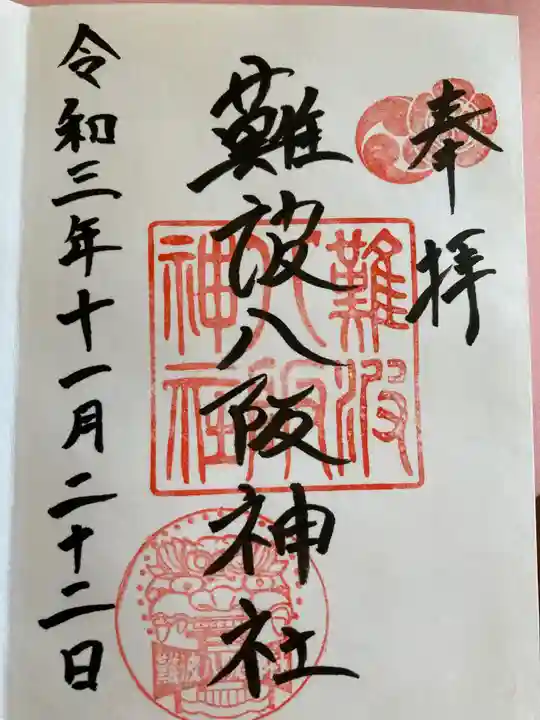 奉拝
難波八阪神社
難波
八阪
神社
令和三年十一月二十二日